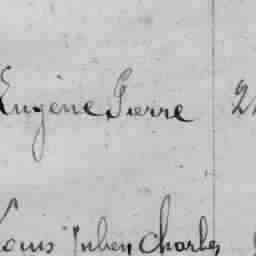 Eugène Pierre 2
Louis Julien Charles